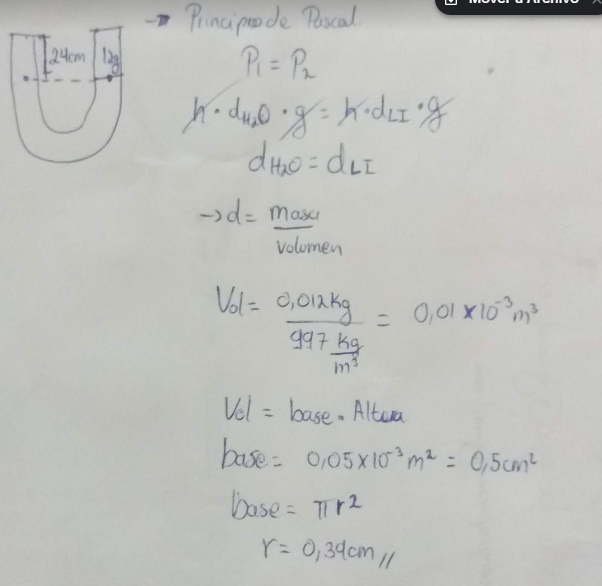 Mover a Archivo
→ Principio de Pascal.
24cm 12g
P1 = P2
h · dH2O · g = h · dLI · g
dH2O = dLI
→ d = masa
volumen
Vol = 0,012kg
997 kg
m³
= 0,01 × 10⁻³ m³
Vol = base · Altura
base = 0,05×10⁻³ m² = 0,5cm²
base = πr²
r = 0,39cm //